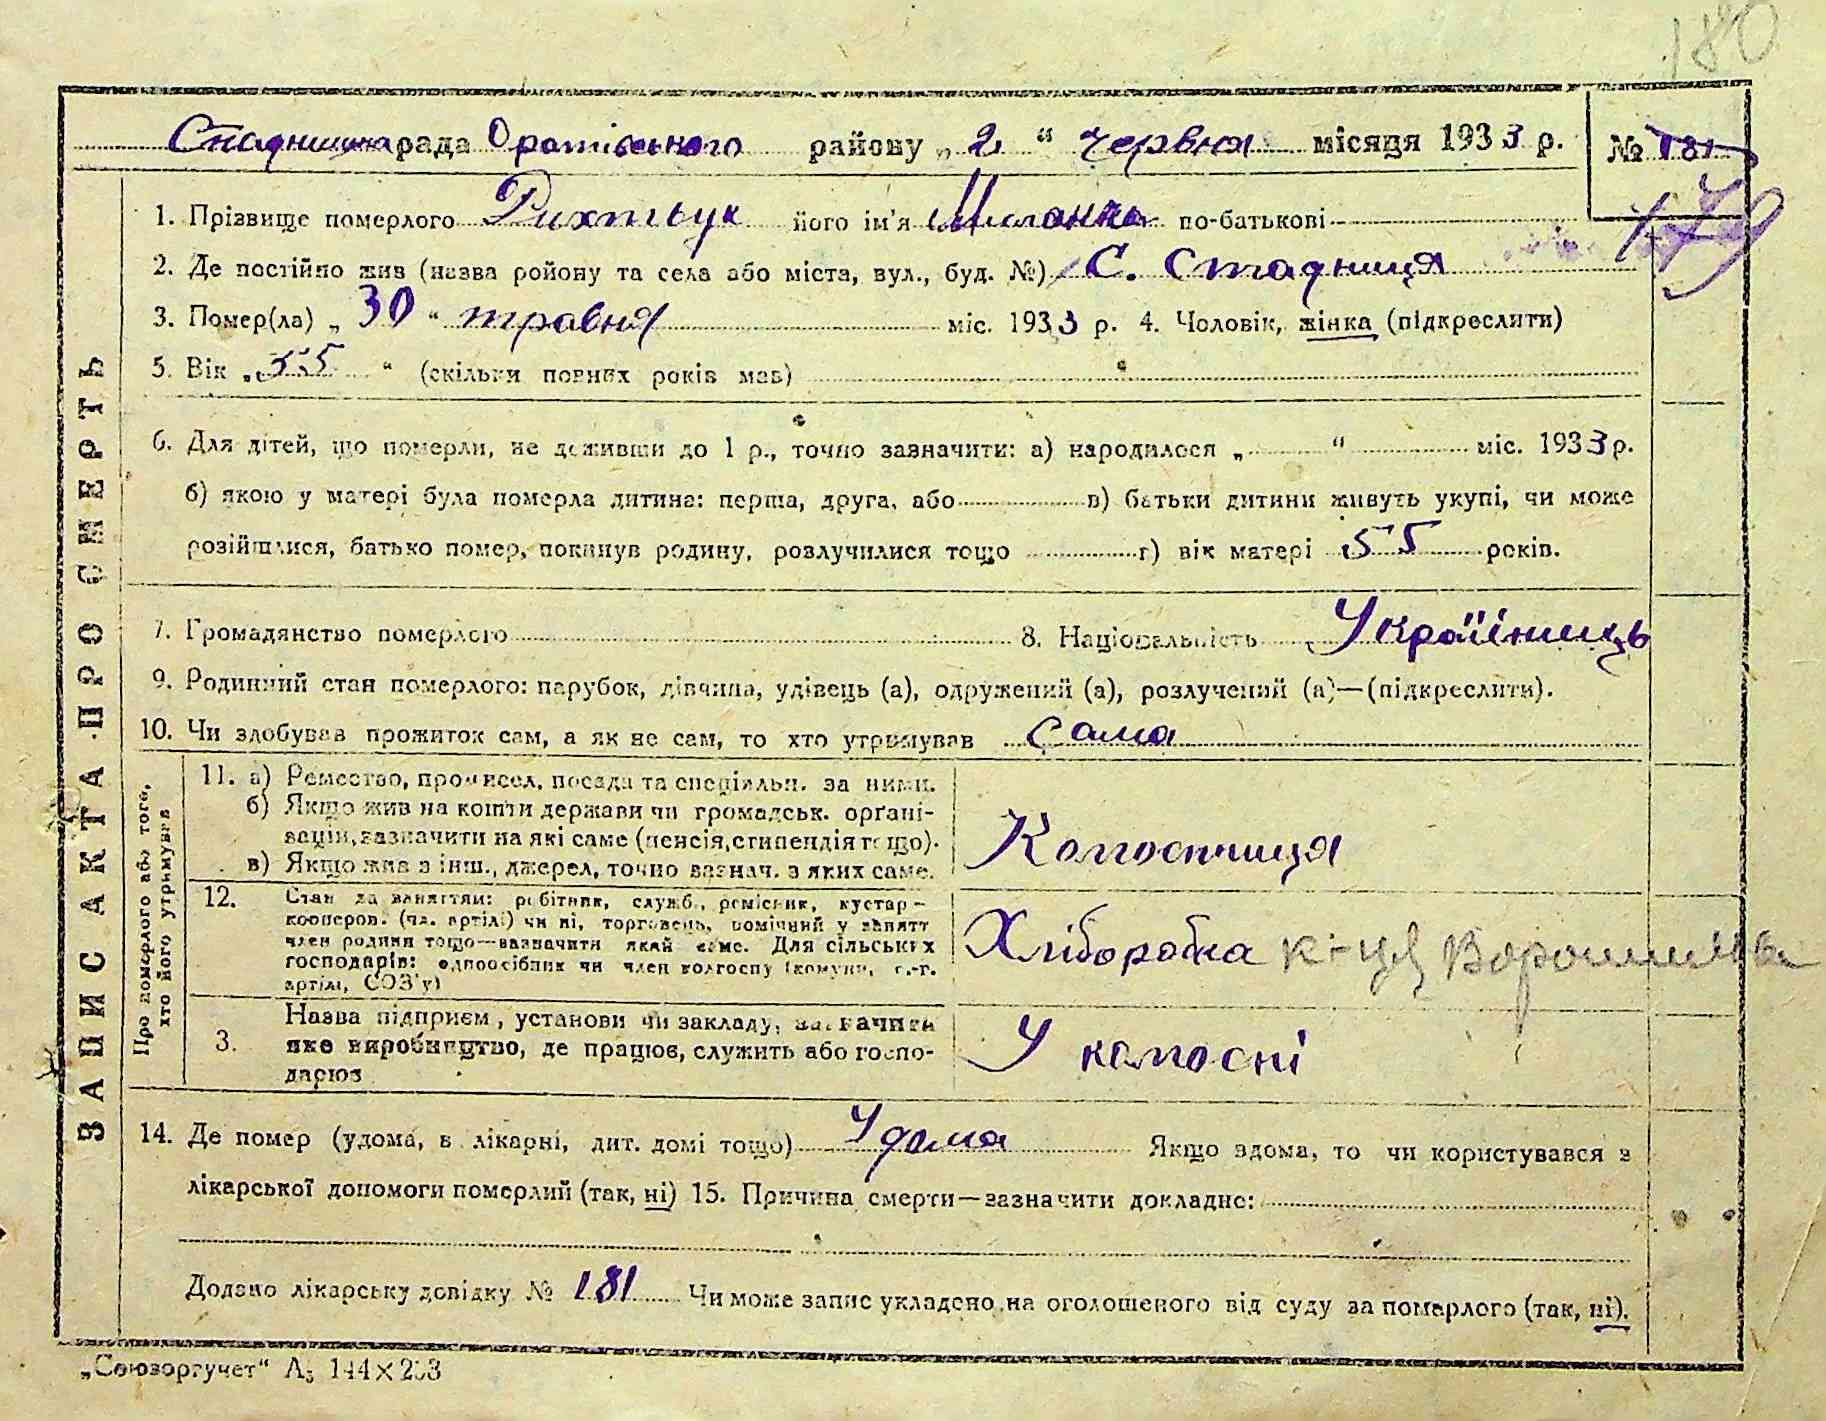 180
Стадницька рада Оратівського району „ 2 “ червня місяця 1933 р. № 181
179
1. Прізвище померлого Рихтьук його ім'я Миланка по-батькові
2. Де постійно жив (назва ройону та села або міста, вул., буд. №) С. Стадниця
3. Помер(ла) „ 30 “ травня міс. 1933 р. 4. Чоловік, жінка (підкреслити)
5. Вік „ 55 “ (скільки повних років мав)
6. Для дітей, що померли, не доживши до 1 р., точно зазначити: а) народилося „ “ міс. 1933 р.
б) якою у матері була померла дитина: перша, друга, або в) батьки дитини живуть укупі, чи може
розійшлися, батько помер, покинув родину, розлучилися тощо г) вік матері 55 років.
7. Громадянство померлого 8. Національність Україіниць
9. Родинний стан померлого: парубок, дівчина, удівець (а), одружений (а), розлучений (а)—(підкреслити).
10. Чи здобував прожиток сам, а як не сам, то хто утримував сама
ЗАПИС АКТА ПРО СМЕРТЬ
Про померлого або того, хто його утримував
11. а) Ремество, промисел, посада та спеціяльн. за ними.
б) Якщо жив на кошти держави чи громадськ. орґані-
зацій, зазначити на які саме (пенсія, стипендія тощо).
в) Якщо жив з інш., джерел, точно вазнач. з яких саме.
Колгоспниця
12. Стан за заняттям: робітник, служб., ремісник, кустар-
кооперов. (чл. артілі) чи ні, торговець, помічний у занятт
член родини тощо—вазначити який саме. Для сільських
господарів: одноосібник чи член колгоспу (комуни, с.-г.
артілі, СОЗ'у)
Хліборобка
3. Назва підприєм, установи чи закладу, зазначити
яке виробництво, де працює, служить або госпо-
дарює
У колгосні
14. Де помер (удома, в лікарні, дит. домі тощо) Удома Якщо вдома, то чи користувався з
лікарської допомоги померлий (так, ні) 15. Причина смерти—зазначити докладно:
Додано лікарську довідку № 181 Чи може запис укладено на оголошеного від суду за померлого (так, ні).
„Союзоргучет“ А5 144×203